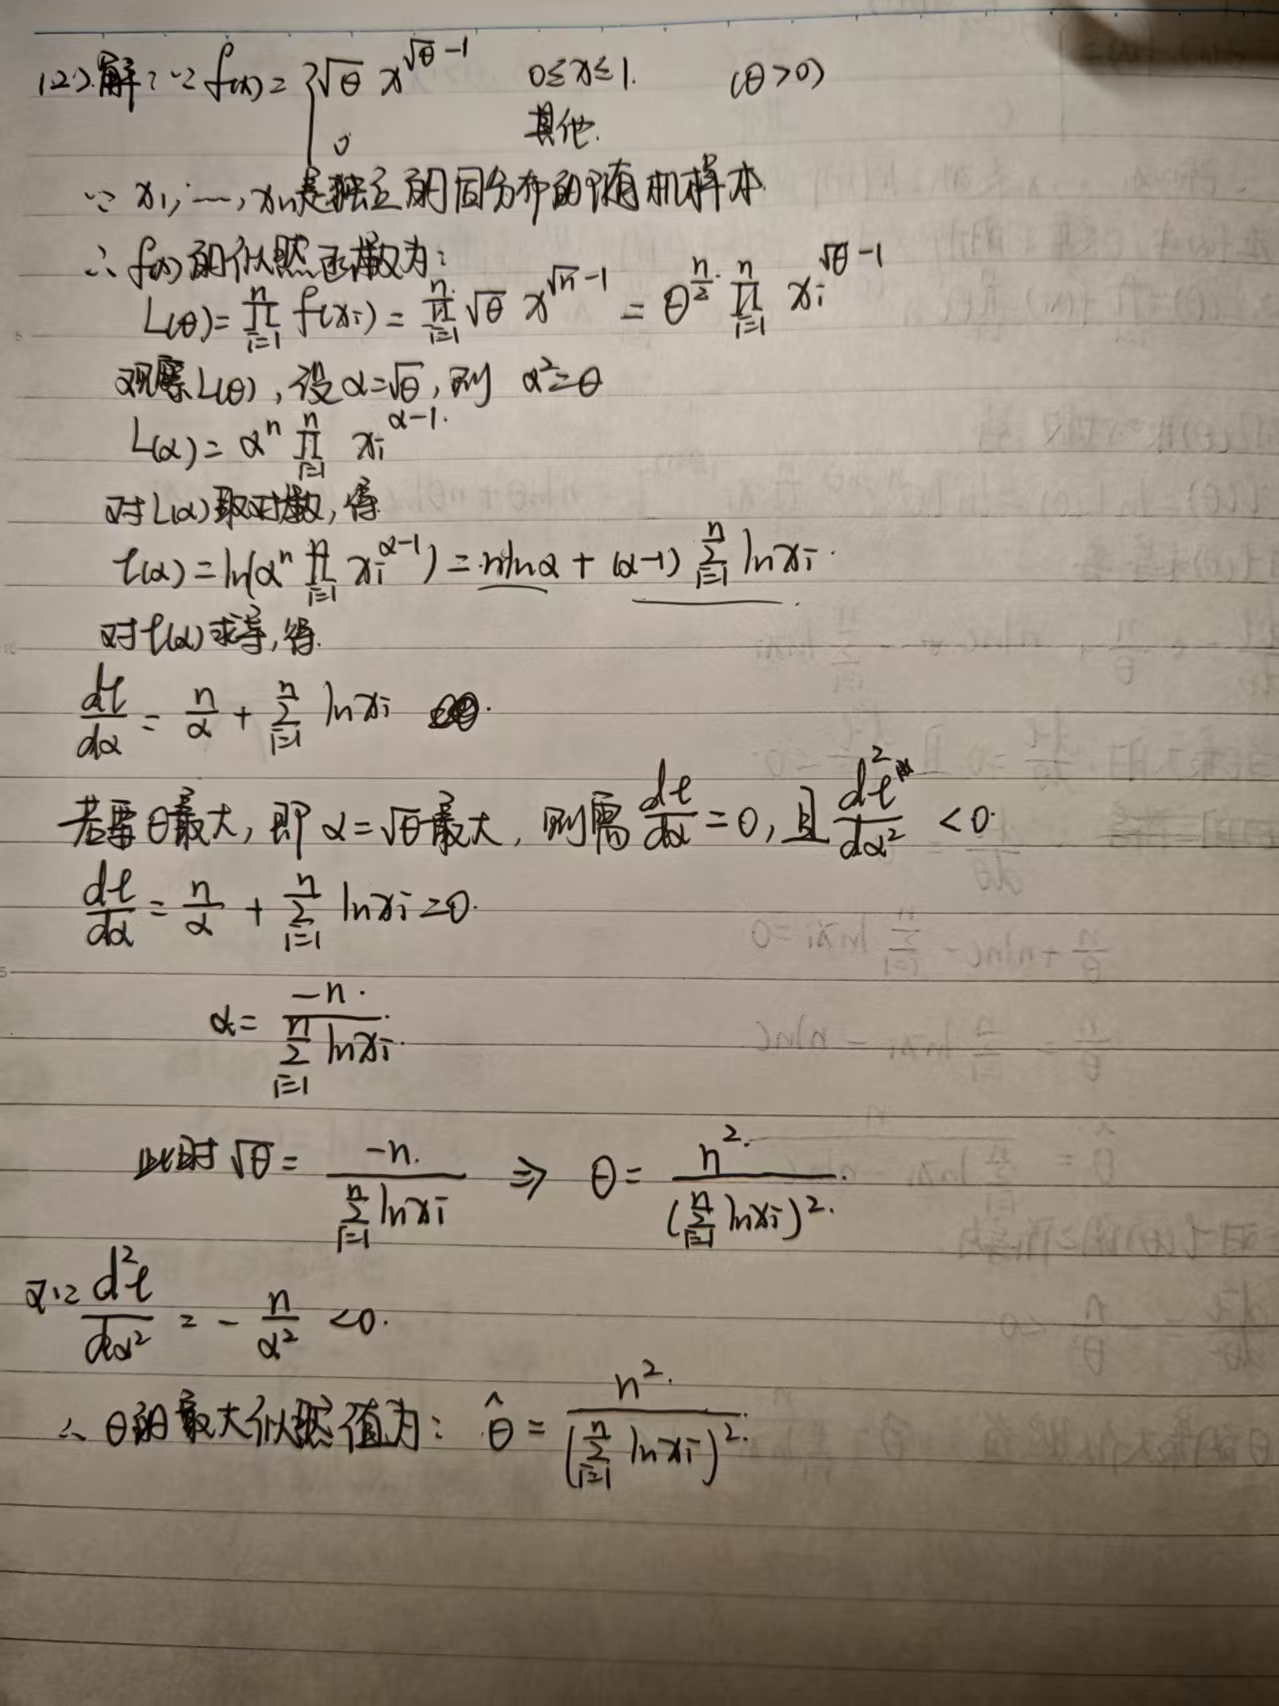 (2).解：∵ f(x)= { √θ x^(√θ-1) 0≤x≤1. (θ>0)
0 其他.
∵ x₁, …, xₙ是独立的同分布的随机样本
∴ f(x)的似然函数为：
L(θ)=∏_{i=1}^{n} f(xᵢ) = ∏_{i=1}^{n} √θ x^(√n-1) = θ^(n/2) · ∏_{i=1}^{n} xᵢ^(√θ-1)
观察L(θ), 设α=√θ, 则 α²=θ
L(α) = αⁿ ∏_{i=1}^{n} xᵢ^(α-1).
对L(α)取对数, 得
ℓ(α) = ln(αⁿ ∏_{i=1}^{n} xᵢ^(α-1)) = nlnα + (α-1) ∑_{i=1}^{n} lnxᵢ.
对ℓ(α)求导, 得.
dℓ/dα = n/α + ∑_{i=1}^{n} lnxᵢ.
若要θ最大, 即 α=√θ最大, 则需 dℓ/dα = 0, 且 d²ℓ/dα² < 0.
dℓ/dα = n/α + ∑_{i=1}^{n} lnxᵢ = 0.
α = -n / ∑_{i=1}^{n} lnxᵢ.
此时 √θ = -n / ∑_{i=1}^{n} lnxᵢ ⇒ θ = n² / (∑_{i=1}^{n} lnxᵢ)².
又∵ d²ℓ/dα² = - n/α² < 0.
∴ θ的最大似然值为： θ̂ = n² / (∑_{i=1}^{n} lnxᵢ)².